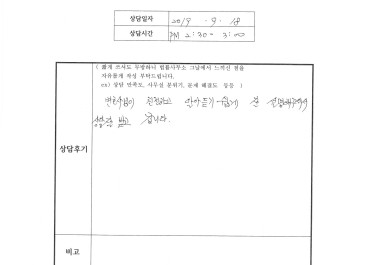 상담일자 2019. 9. 18
상담시간 PM 2:30 - 3:00
( 짧게 쓰셔도 무방하니 법률사무소 그날에서 느끼신 점을
자유롭게 작성 부탁드립니다.
ex) 상담 만족도, 사무실 분위기, 문제 해결도 등등 )
변호사님이 친절하고 알아듣기 쉽게 잘 설명해주셔서
받고 갑니다.
상담후기
비고